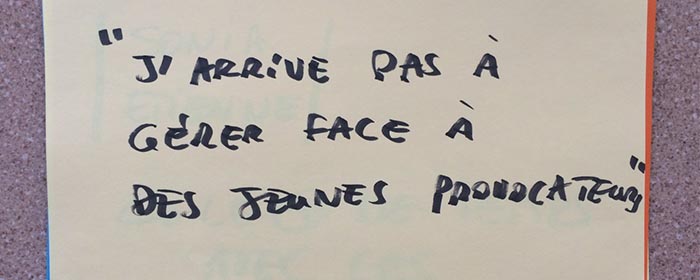 "J'ARRIVE PAS À
GÉRER FACE À
DES JEUNES PROVOCATEURS"